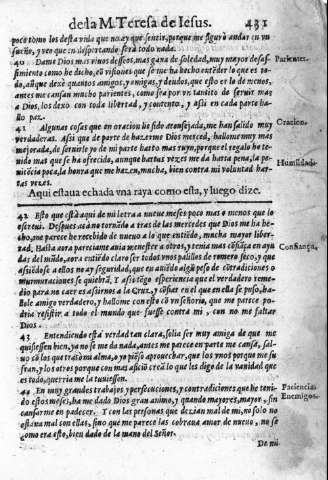 de la M. Teresa de Iesus. 431
poco como los desta vida que no ay que sentir, porque me figura andar en vn
sueño, y veo que en despertando serà todo nada.
40 Dame Dios mas viuos desseos, mas gana de soledad, muy mayor desa-
Parientes.
simiento como he dicho, cō visiones que se me ha hecho entēder lo que es to-
do, aūque dexè quantos amigos, y amigas, y deudos, que esto es lo de menos,
antes me cansan mucho parientes, como sea por vn tantito de seruir mas
a Dios, los dexo con toda libertad, y contento, y assi en cada parte ha-
llo paz.
41 Algunas cosas que en oracion he sido acōsejada, me han salido muy
Oracion.
verdaderas. Assi que de parte de hazerme Dios merced, hallome muy mas
mejorada, de seruirle yo de mi parte harto mas ruyn, porque el regalo he te-
nido mas que se ha ofrecido, aunque hartas vezes me da harta pena, la pe-
Humildad.
nitēcia poca, la honra que me hazen, mucha, bien contra mi voluntad har-
tas vezes.
Aqui estaua echada vna raya como esta, y luego dize.
42 Esto que està aqui de mi letra a nueue meses poco mas o menos que lo
escreui. Despues aca no tornādo a tras de las mercedes que Dios me ha he-
cho, me parece he recebido de nueuo a lo que entiēdo, mucha mayor liber-
tad. Hasta aora pareciame auia menester a otros, y tenia mas cōfiāça en ayu
Confiança,
das del mūdo, aora entiēdo claro ser todos vnos palillos de romero seco, y que
asiēdose a ellos no ay seguridad, que en auiēdo algū peso de cōtradiciones o
murmuraciones se quiebrā. Y assi tēgo esperiencia que el verdadero reme-
dio para no caer es assirnos a la Cruz, y cōfiar en el que en ella se puso, ha-
llole amigo verdadero, y hallome con esto cō vn señorio, que me parece po-
dria resistir a todo el mundo que fuesse contra mi, con no me faltar
Dios.
43 Entendiendo esta verdad tan clara, solia ser muy amiga de que me
quisiessen bien, ya no se me da nada, antes me parece en parte me cansa, sal-
uo cō los que trato mi alma, o yo piēso aprouechar, que los vnos porque me su
fran, y los otros porque con mas aficiō creā lo que les digo de la vanidad que
es todo, querria me la tuuiessen.
44 En muy grandes trabajos y persecuciones, y contradiciones que he teni-
Paciencia.
do estos meses, ha me dado Dios gran animo, y quando mayores, mayor, sin
Enemigos.
cansarme en padecer. Y con las personas que deziā mal de mi, no solo no
estaua mal con ellas, sino que me parece las cobraua amor de nueuo, no se
como era esto, bien dado de la mano del Señor.
De mi